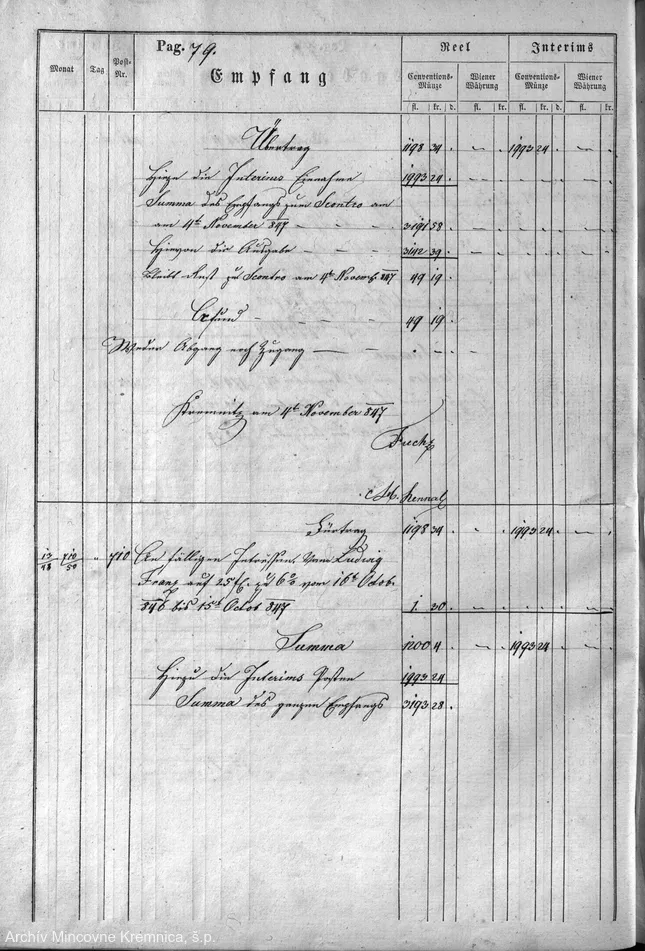 Pag. 79.
Reel
Interims
Monat
Tag
Post-Nr.
Empfang
Conventions-Münze
Wiener Währung
Conventions-Münze
Wiener Währung
fl. kr. d. fl. kr. fl. kr. d. fl. kr.
Übertrag 1198 34 . 1993 24 .
Hiezu die Interims Einnahme 1993 24 .
Summa des Empfangs zum Scontro am
am 4t November 847 3191 58 .
Hievon die Ausgabe 3142 39 .
Bleibt Rest zu Scontro am 4t Novemb. 847 49 19 .
Erfund 49 19 .
Weder Abgang noch Zugang
Kremnitz am 4t November 847
Fuchs
Fürtrag 1198 34 . 1993 24 .
710 An fälligen Interessen vom Ludwig
Franz auf 25 fl. zu 6% vom 16t Octob.
846 bis 15t Octob 847 1. 30 .
Summa 1200 4 . 1993 24 .
Hiezu die Interims Posten 1993 24
Summa des ganzen Empfangs 3193 28 .
Archív Mincovne Kremnica, š.p.